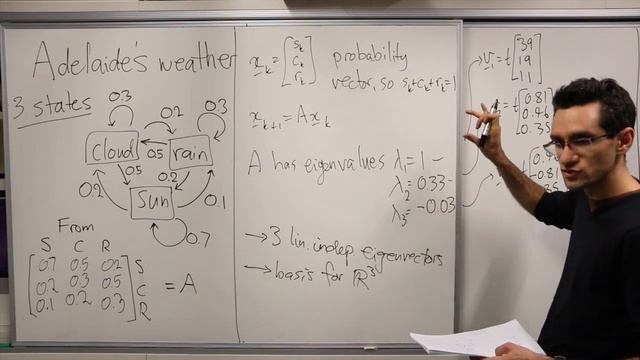 Adelaide's weather
3 states
0.3
0.2
0.3
Cloud
rain
0.5
0.5
0.2
0.2
Sun
0.1
0.7
From
S C R
[0.7 0.5 0.2] S
[0.2 0.3 0.5] C = A
[0.1 0.2 0.3] R
x_k = [s_k c_k r_k] probability
vector, so s_k+c_k+r_k=1
x_k+1 = Ax_k
A has eigenvalues λ1 = 1
λ2 = 0.33
λ3 = -0.03
→ 3 lin. indep eigenvectors
→ basis for ℝ³
v1 = t [39 19 11]
= t [0.81 0.46 0.35